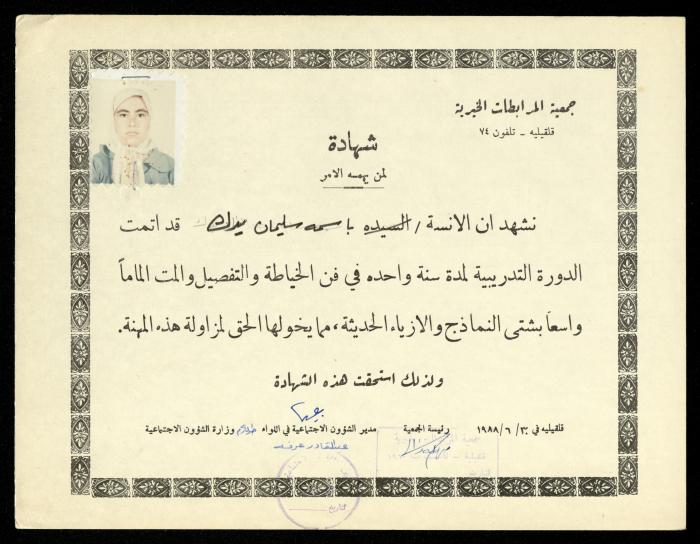 جمعية المرابطات الخيرية
قلقيليه - تلفون ٧٤
شهادة
لمن يهمه الامر
نشهد ان الانسة / السيده باسمه سليمان قد اتمت
الدورة التدريبية لمدة سنة واحده في فن الخياطة والتفصيل والمت الماماً
واسعاً بشتى النماذج والازياء الحديثة، مما يخولها الحق لمزاولة هذه المهنة.
ولذلك استحقت هذه الشهادة
قلقيليه في ٣٠ / ٦ / ١٩٨٨ رئيسة الجمعية مدير الشؤون الاجتماعية في اللواء وزارة الشؤون الاجتماعية
عبدالقادر